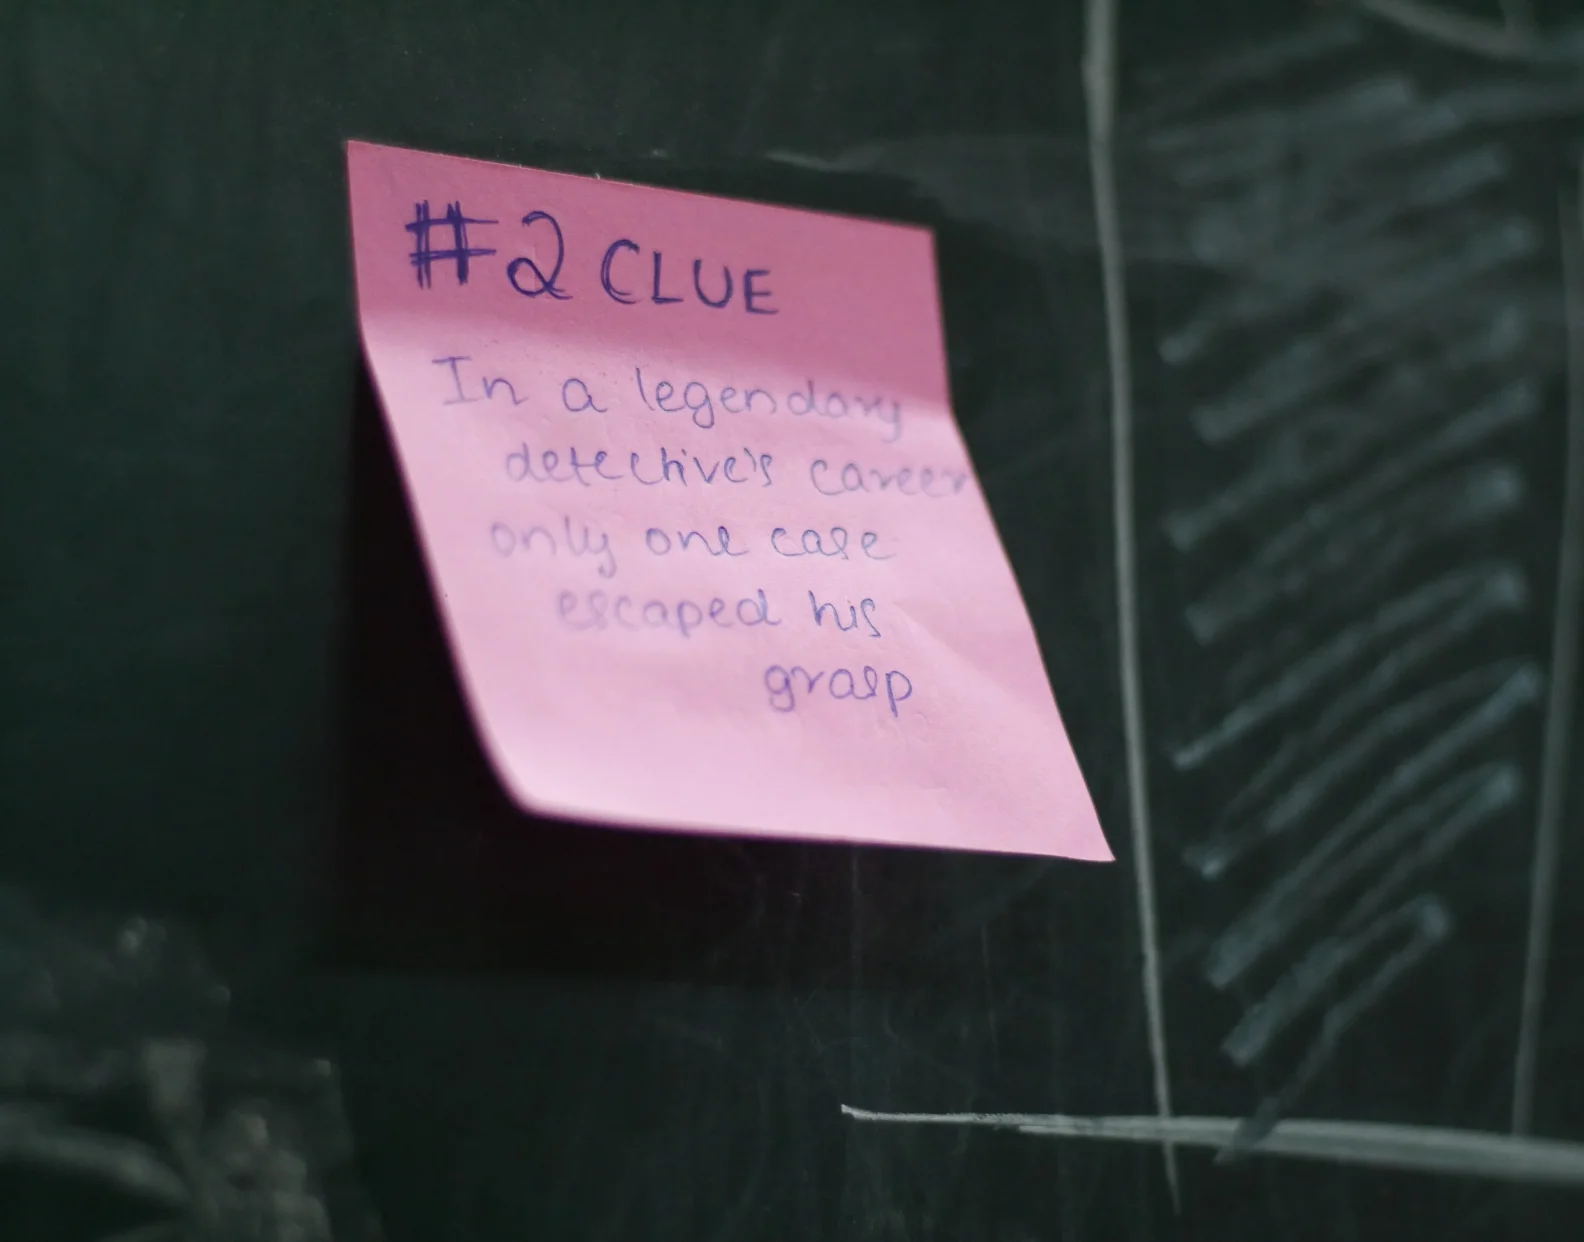 #2 CLUE
In a legendary
detective's career
only one case
escaped his
grasp